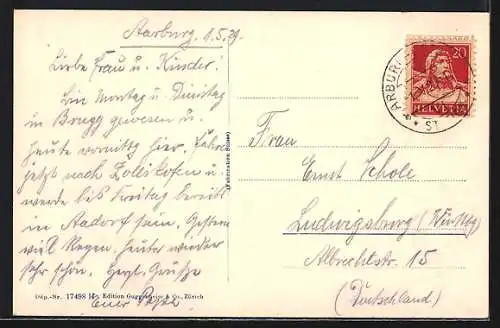 Aarburg, 1.5.29.
Liebe Frau u. Kinder.
Bin Montag u. Dienstag
in Brugg gewesen u.
heute vormittag hier. Fahre
jetzt nach Zollikofen u.
werde bis Freitag bereits
in Aadorf sein. Gestern
viel Regen, heute wieder
sehr schön. Herzl. Grüße
Euer Papa
Dép.-Nr. 17498 Edition Guggenheim & Co., Zürich
20
HELVETIA
AARBURG
Frau
Ernst Schole
Ludwigsburg (Württbg)
Albrechtstr. 15
(Deutschland)